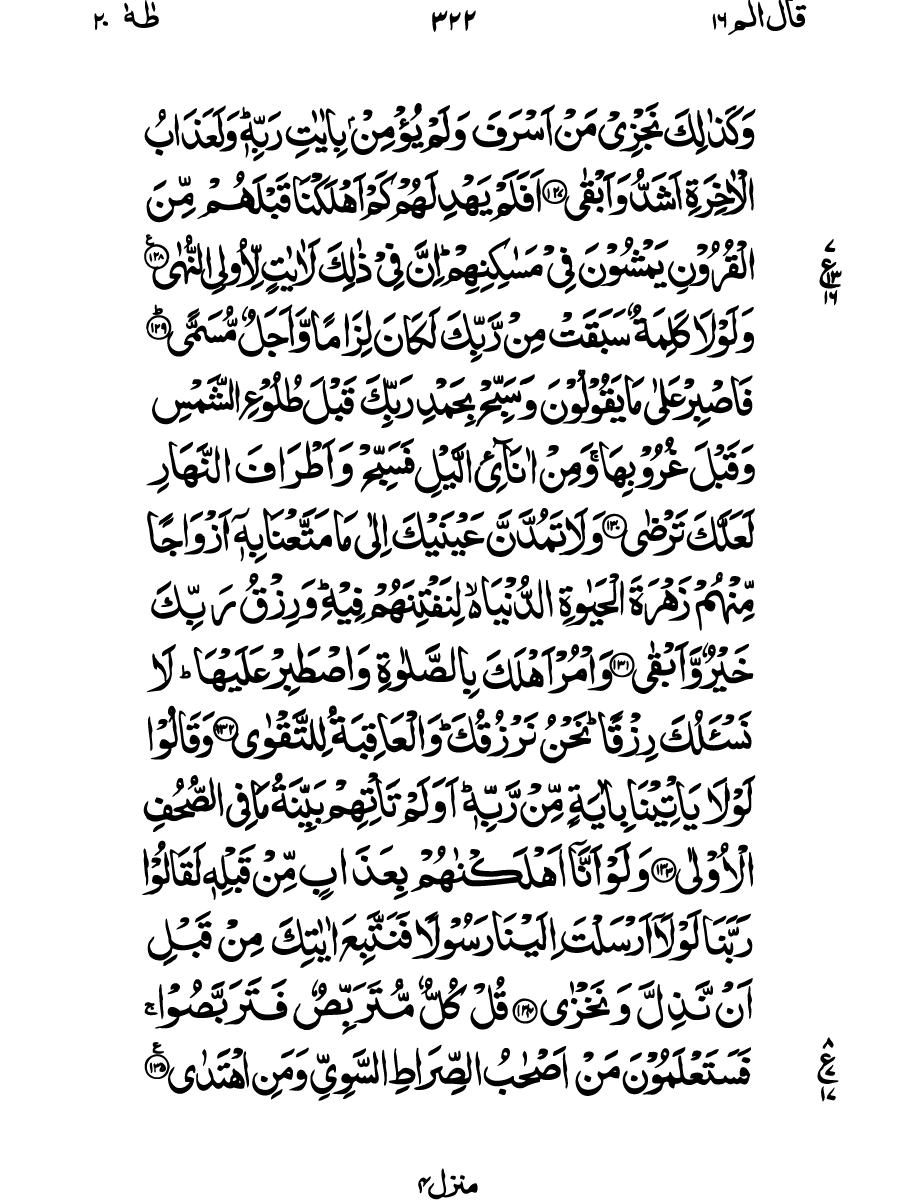 قال الم ١٦ ٣٢٢ طٰهٰ ٢٠
وَكَذٰلِكَ نَجْزِيْ مَنْ اَسْرَفَ وَلَمْ يُؤْمِنْۢ بِاٰيٰتِ رَبِّهٖ ؕ وَلَعَذَابُ
الْاٰخِرَةِ اَشَدُّ وَاَبْقٰى ﴿۱۲۷﴾ اَفَلَمْ يَهْدِ لَهُمْ كَمْ اَهْلَكْنَا قَبْلَهُمْ مِّنَ
الْقُرُوْنِ يَمْشُوْنَ فِيْ مَسٰكِنِهِمْ ؕ اِنَّ فِيْ ذٰلِكَ لَاٰيٰتٍ لِّاُولِي النُّهٰى ﴿۱۲۸﴾ ع
٧ ع ١٣ ١٦
وَلَوْلَا كَلِمَةٌ سَبَقَتْ مِنْ رَّبِّكَ لَكَانَ لِزَامًا وَّاَجَلٌ مُّسَمًّى ﴿۱۲۹﴾ ؕ
فَاصْبِرْ عَلٰى مَا يَقُوْلُوْنَ وَسَبِّحْ بِحَمْدِ رَبِّكَ قَبْلَ طُلُوْعِ الشَّمْسِ
وَقَبْلَ غُرُوْبِهَا ۚ وَمِنْ اٰنَآئِ الَّيْلِ فَسَبِّحْ وَاَطْرَافَ النَّهَارِ
لَعَلَّكَ تَرْضٰى ﴿۱۳۰﴾ وَلَا تَمُدَّنَّ عَيْنَيْكَ اِلٰى مَا مَتَّعْنَا بِهٖۤ اَزْوَاجًا
مِّنْهُمْ زَهْرَةَ الْحَيٰوةِ الدُّنْيَا ۙ۬ لِنَفْتِنَهُمْ فِيْهِ ؕ وَرِزْقُ رَبِّكَ
خَيْرٌ وَّاَبْقٰى ﴿۱۳۱﴾ وَاْمُرْ اَهْلَكَ بِالصَّلٰوةِ وَاصْطَبِرْ عَلَيْهَا ؕ لَا
نَسْـَٔلُكَ رِزْقًا ؕ نَحْنُ نَرْزُقُكَ ؕ وَالْعَاقِبَةُ لِلتَّقْوٰى ﴿۱۳۲﴾ وَقَالُوْا
لَوْلَا يَاْتِيْنَا بِاٰيَةٍ مِّنْ رَّبِّهٖ ؕ اَوَلَمْ تَاْتِهِمْ بَيِّنَةُ مَا فِي الصُّحُفِ
الْاُوْلٰى ﴿۱۳۳﴾ وَلَوْ اَنَّاۤ اَهْلَكْنٰهُمْ بِعَذَابٍ مِّنْ قَبْلِهٖ لَقَالُوْا
رَبَّنَا لَوْلَاۤ اَرْسَلْتَ اِلَيْنَا رَسُوْلًا فَنَتَّبِعَ اٰيٰتِكَ مِنْ قَبْلِ
اَنْ نَّذِلَّ وَنَخْزٰى ﴿۱۳۴﴾ قُلْ كُلٌّ مُّتَرَبِّصٌ فَتَرَبَّصُوْا ۚ
فَسَتَعْلَمُوْنَ مَنْ اَصْحٰبُ الصِّرَاطِ السَّوِيِّ وَمَنِ اهْتَدٰى ﴿۱۳۵﴾ ع
٨ ع ١٧
منزل ۴